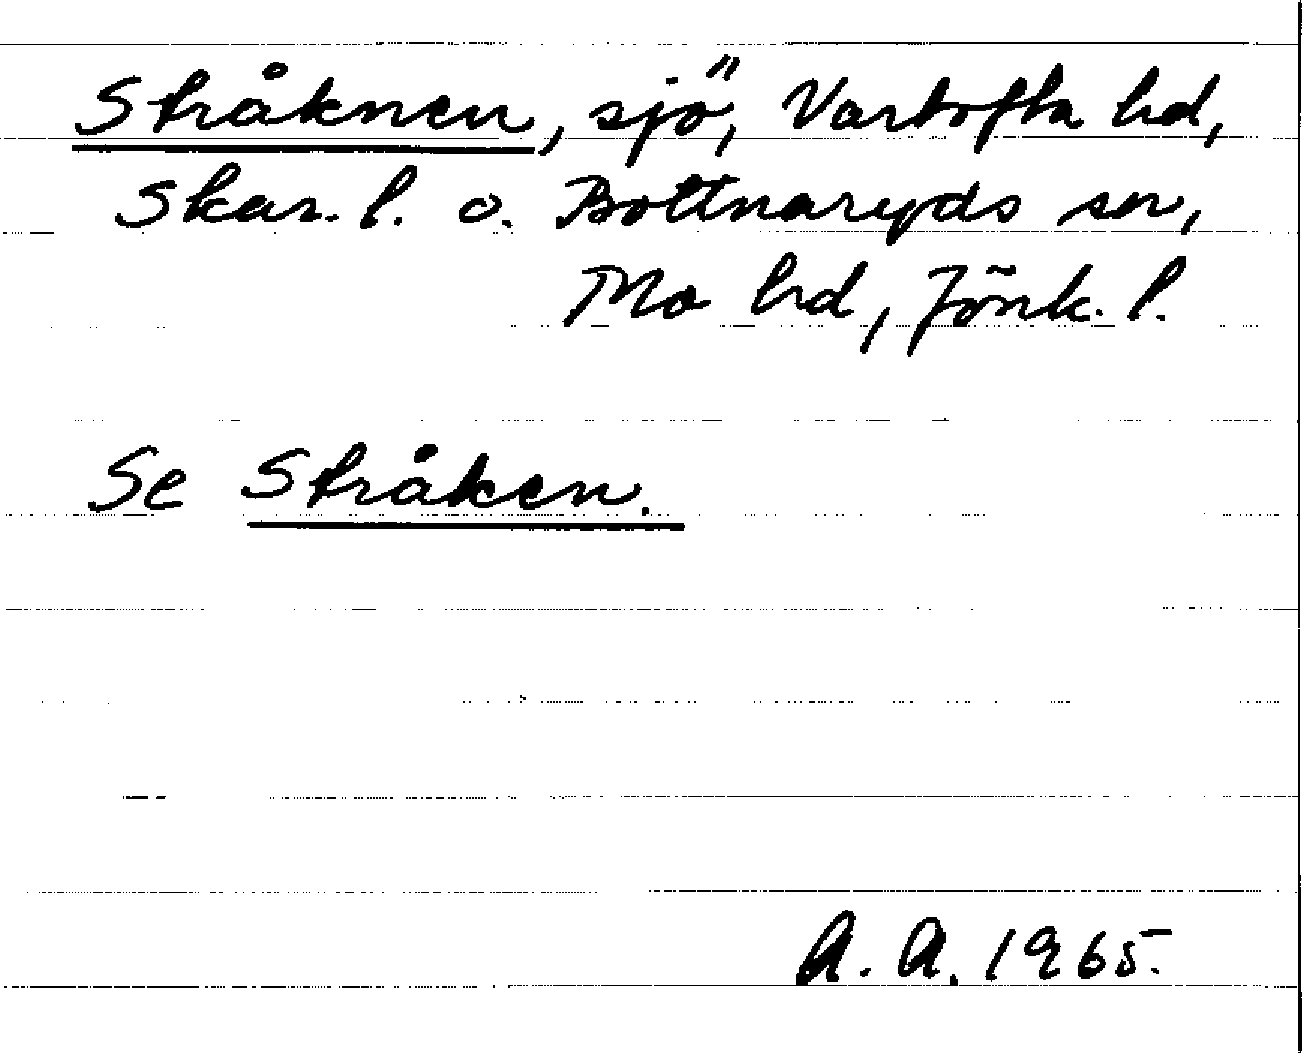 Stråknen, sjö, Vartofta hd,
Skar. l. o. Bottnaryds sn,
Mo hd, Jönk. l.
Se Stråken.
A. A. 1965.